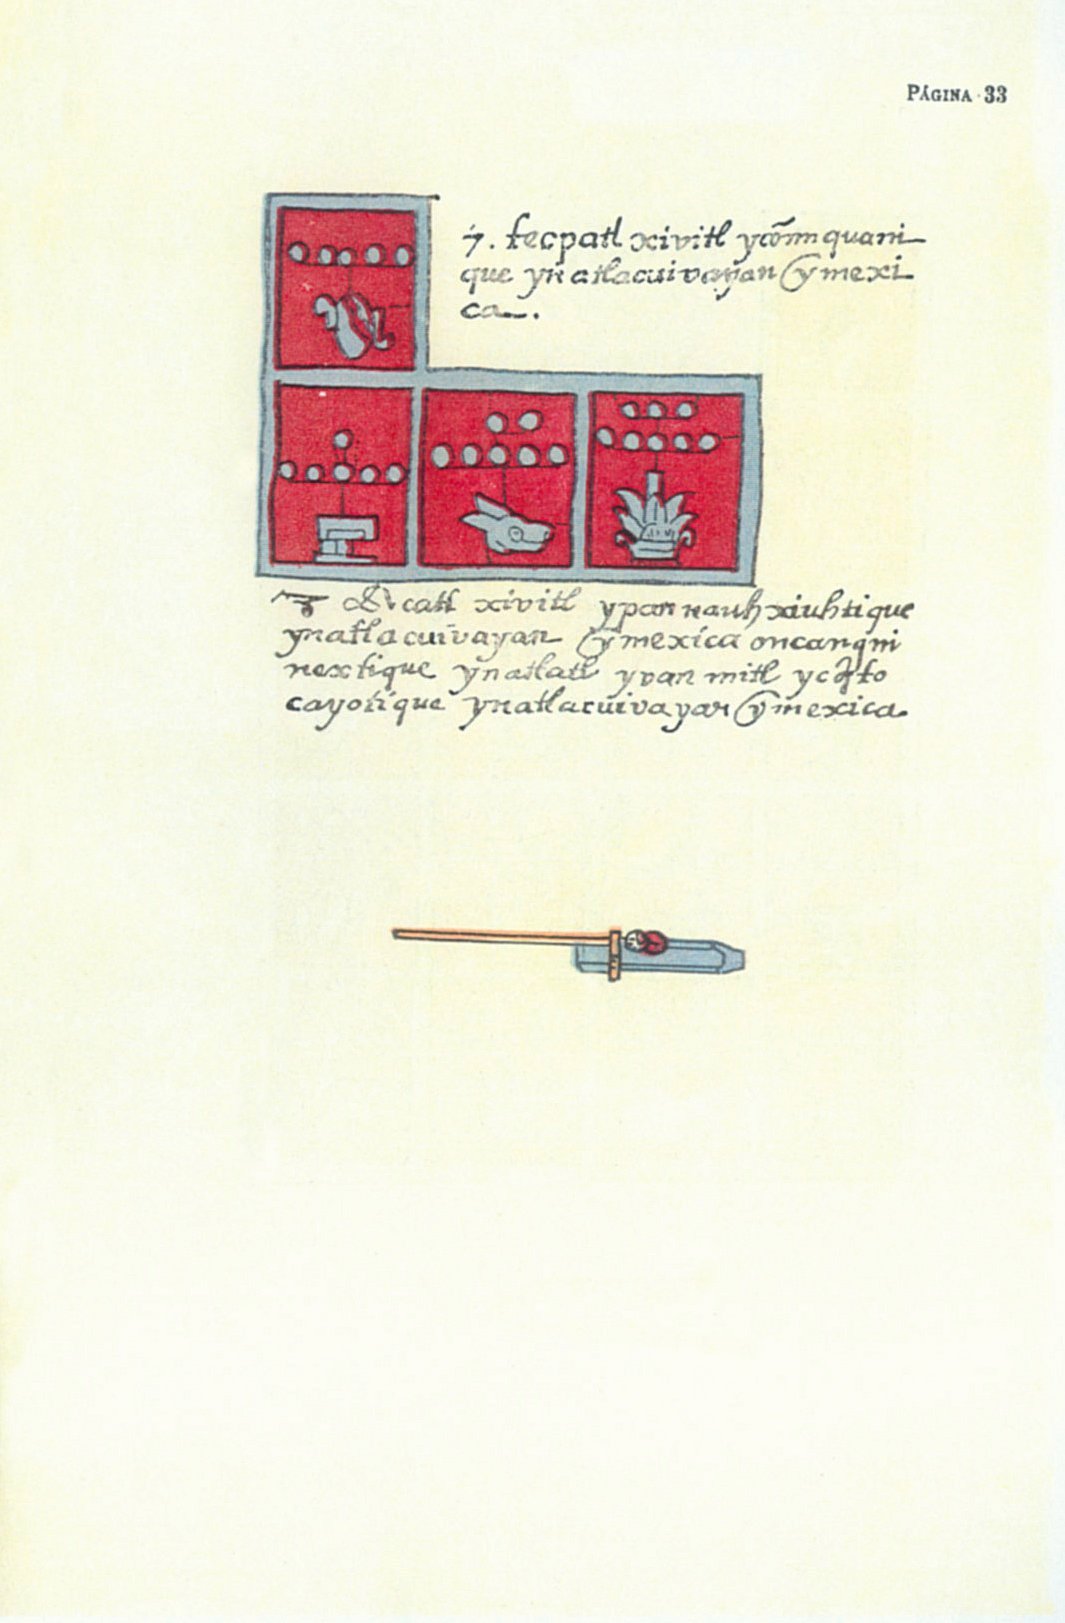 PÁGINA 33
7. tecpatl xivitl ycōm quani
que yn atlacuivayan y mexi
ca.
Acatl xivitl ypan nauhxiuhtique
yn atlacuivayan y mexica oncanqui
nextique yn atlatl yvan mitl yc
cayotique yn atlacuivayan y mexica